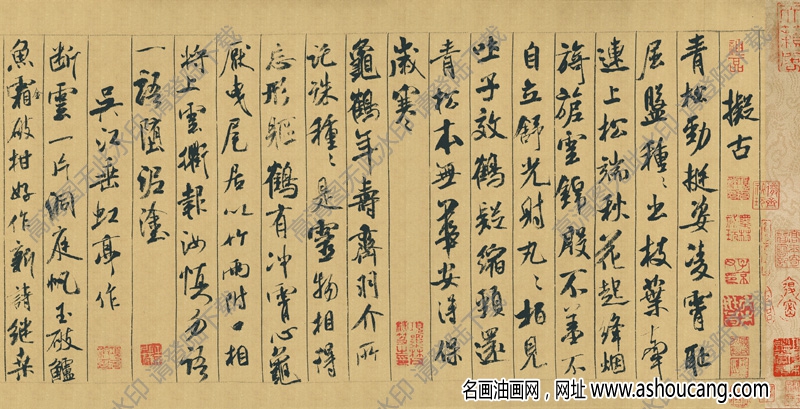 擬古
青松勁挺姿凌霄恥
屈盤種〻出枝葉牽
連上松端秋花起絳烟
旖旎雲錦殷不羞不
自立舒光射丸〻柏見
吐子效鶴疑縮頸還
青松本無華安得保
歲寒〻
龜鶴年壽齊羽介所
託殊種〻是靈物相得
忘形軀鶴有沖霄心龜
厭曳尾居以竹兩附口相
將上雲衢報汝慎勿語
一語墮泥塗
吳江垂虹亭作
斷雲一片洞庭帆玉破鱸
魚霜破柑好作新詩繼桑
高清图无此水印·请登陆下载
名画油画网,网址 www.ashoucang.com